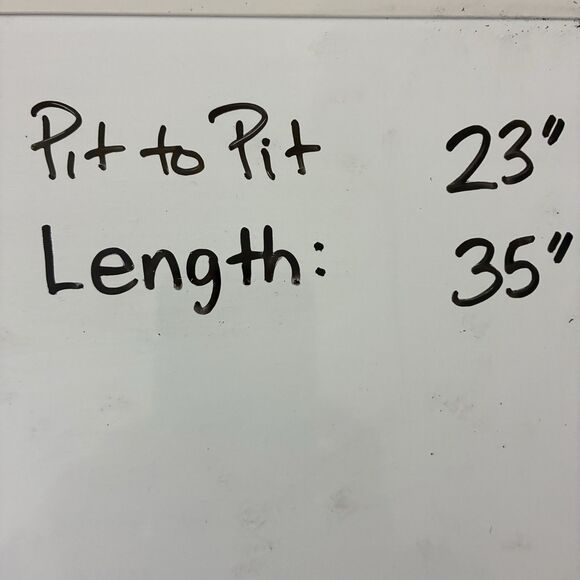 Pit to Pit 23"
Length: 35"